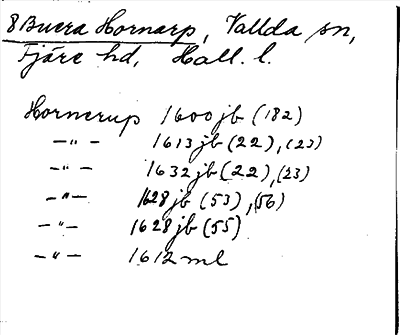 8 Buera Hornarp, Vallda sn,
Fjäre hd, Hall. l.
Hornerup 1600 jb (182)
—"— 1613 jb (22), (23)
—"— 1632 jb (22), (23)
—"— 1628 jb (53), (56)
—"— 1628 jb (55)
—"— 1612 ml